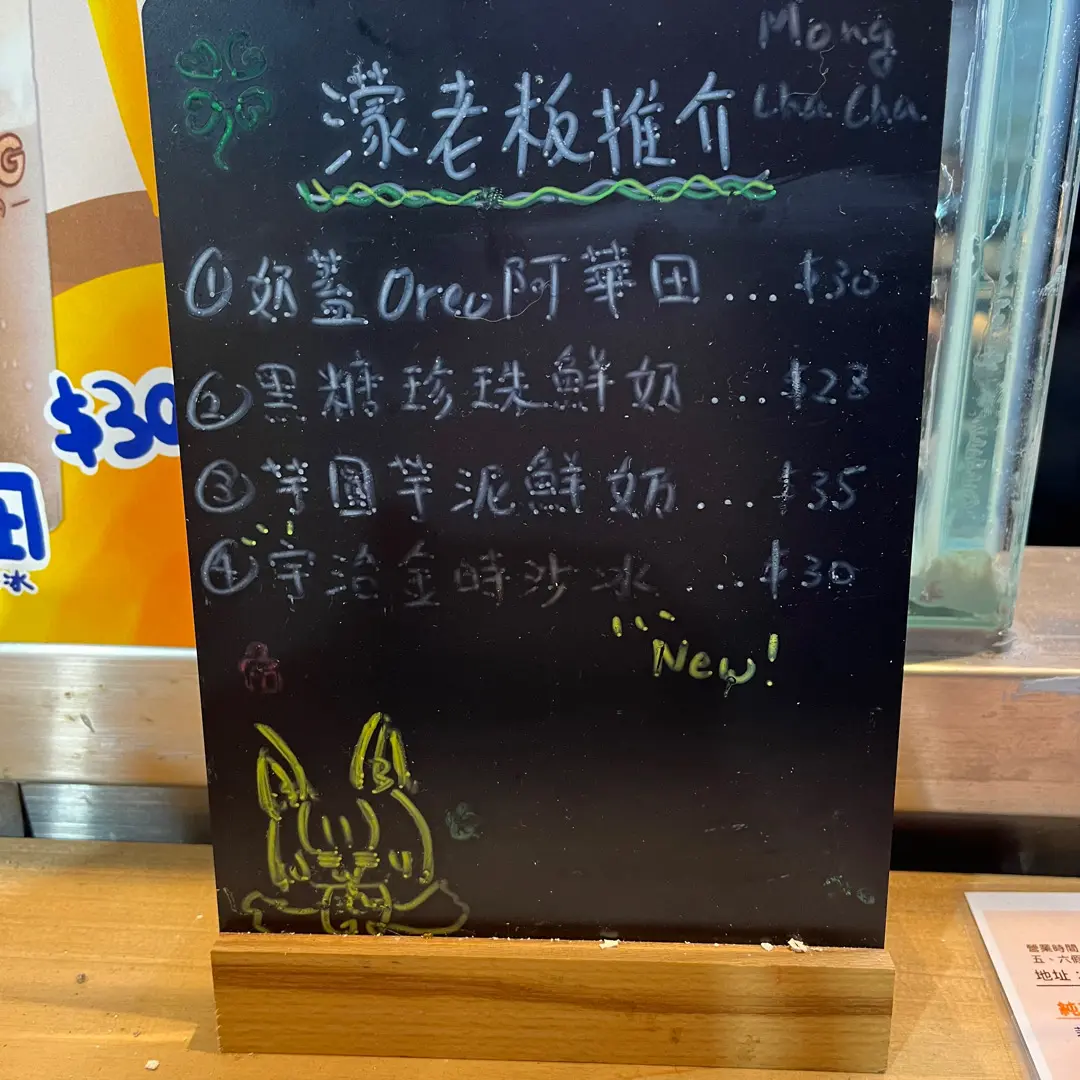 Mong
Cha Cha
濛老板推介
① 奶蓋Oreo阿華田...$30
② 黑糖珍珠鮮奶....$28
③ 芋圓芋泥鮮奶...$35
④ 宇治金時沙冰 ...$30
New!
G
$30
田
冰
營業時間
五、六
地址:
純